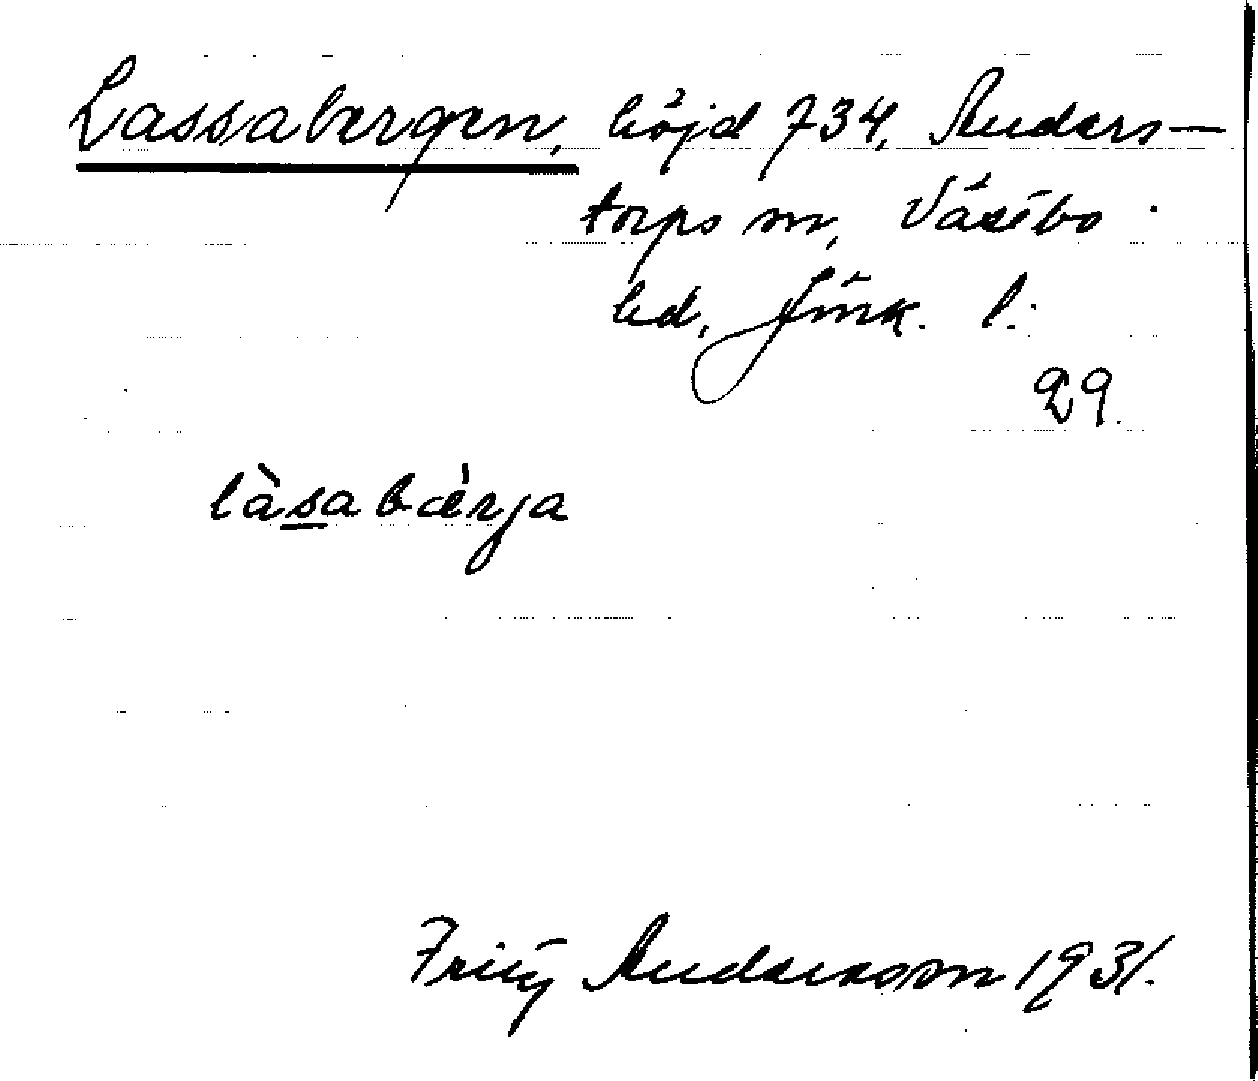 Lassabergen, höjd 734, Anders-
torps sn, Västbo
hd, Jönk. l.
29.
làsabæ̀rja
Fritz Andersson 1931.